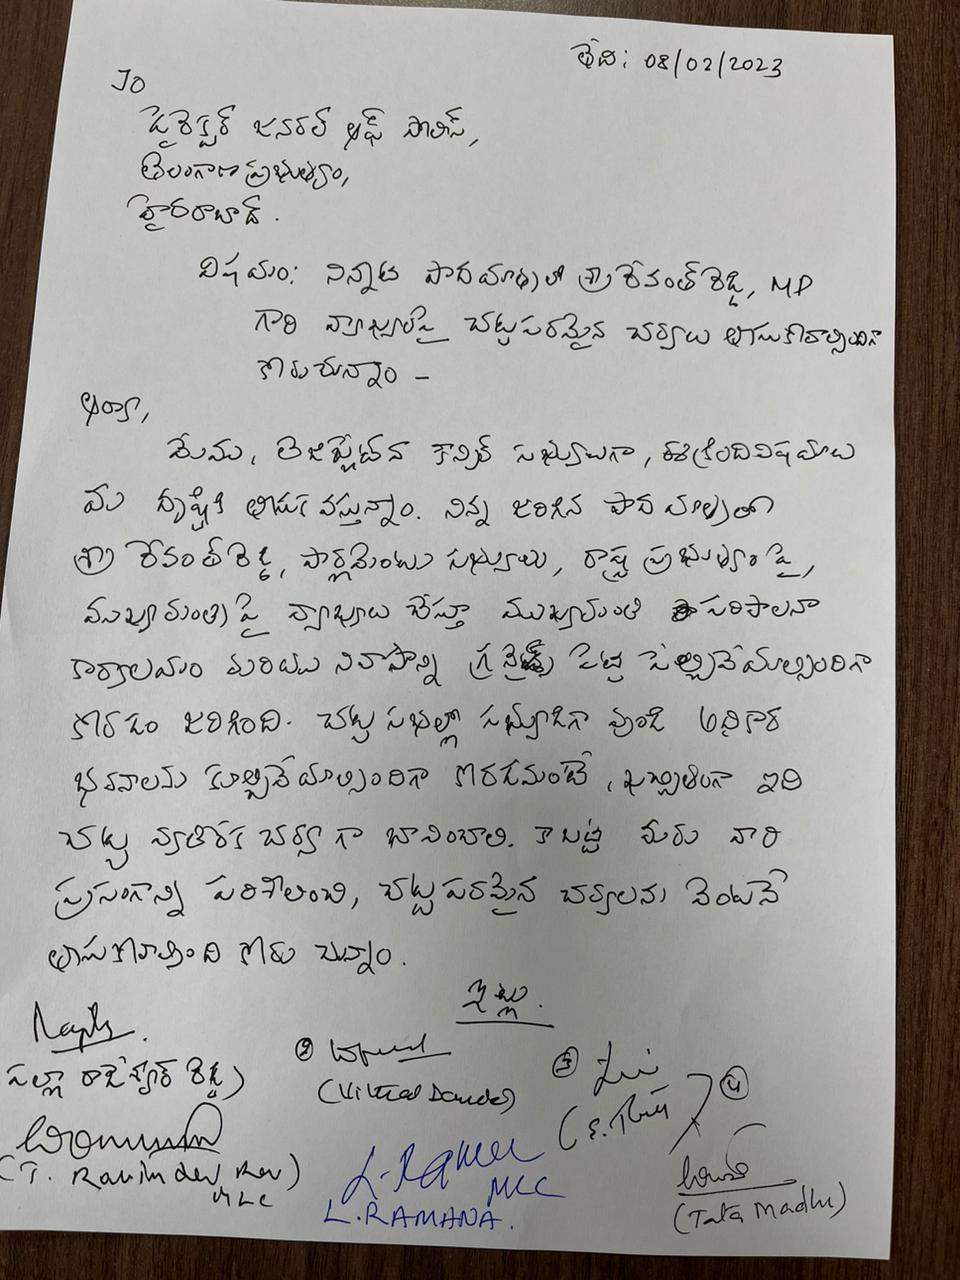 తేది: 08/02/2023
To
డైరెక్టర్ జనరల్ ఆఫ్ పోలీస్,
తెలంగాణ ప్రభుత్వం,
హైదరాబాద్.
విషయం: నిన్నటి పాదయాత్రలో శ్రీ రేవంత్ రెడ్డి, MP
గారి వ్యాఖ్యలపై చట్టపరమైన చర్యలు తీసుకోవాల్సిందిగా
కోరుచున్నాం -
అయ్యా,
మేము, లెజిస్లేటివ్ కౌన్సిల్ సభ్యులుగా, ఈ క్రింది విషయాలు
మీ దృష్టికి తీసుకు వస్తున్నాం. నిన్న జరిగిన పాదయాత్రలో
శ్రీ రేవంత్ రెడ్డి, పార్లమెంటు సభ్యులు, రాష్ట్ర ప్రభుత్వంపై,
ముఖ్యమంత్రిపై వ్యాఖ్యలు చేస్తూ ముఖ్యమంత్రి పరిపాలనా
కార్యాలయం మరియు నివాసాన్ని గ్రనైడ్స్ పెట్టి పేల్చివేయాల్సిందిగా
కోరడం జరిగింది. చట్ట సభల్లో సభ్యుడిగా వుండి అధికార
భవనాలను కూల్చివేయాల్సిందిగా కోరడమంటే, ఖచ్చితంగా ఇది
చట్ట వ్యతిరేక చర్య గా భావించాలి. కాబట్టి మీరు వారి
ప్రసంగాన్ని పరిశీలించి, చట్టపరమైన చర్యలను వెంటనే
తీసుకోవాల్సింది కోరుచున్నాం.
ఇట్లు.
పల్లా రాజేశ్వర్ రెడ్డి)
②
(Vittal Dande)
③
④
(T. Ravinder Rao)
MLC
L. Ramana
MLC
L.RAMANA.
(Tata Madhu)